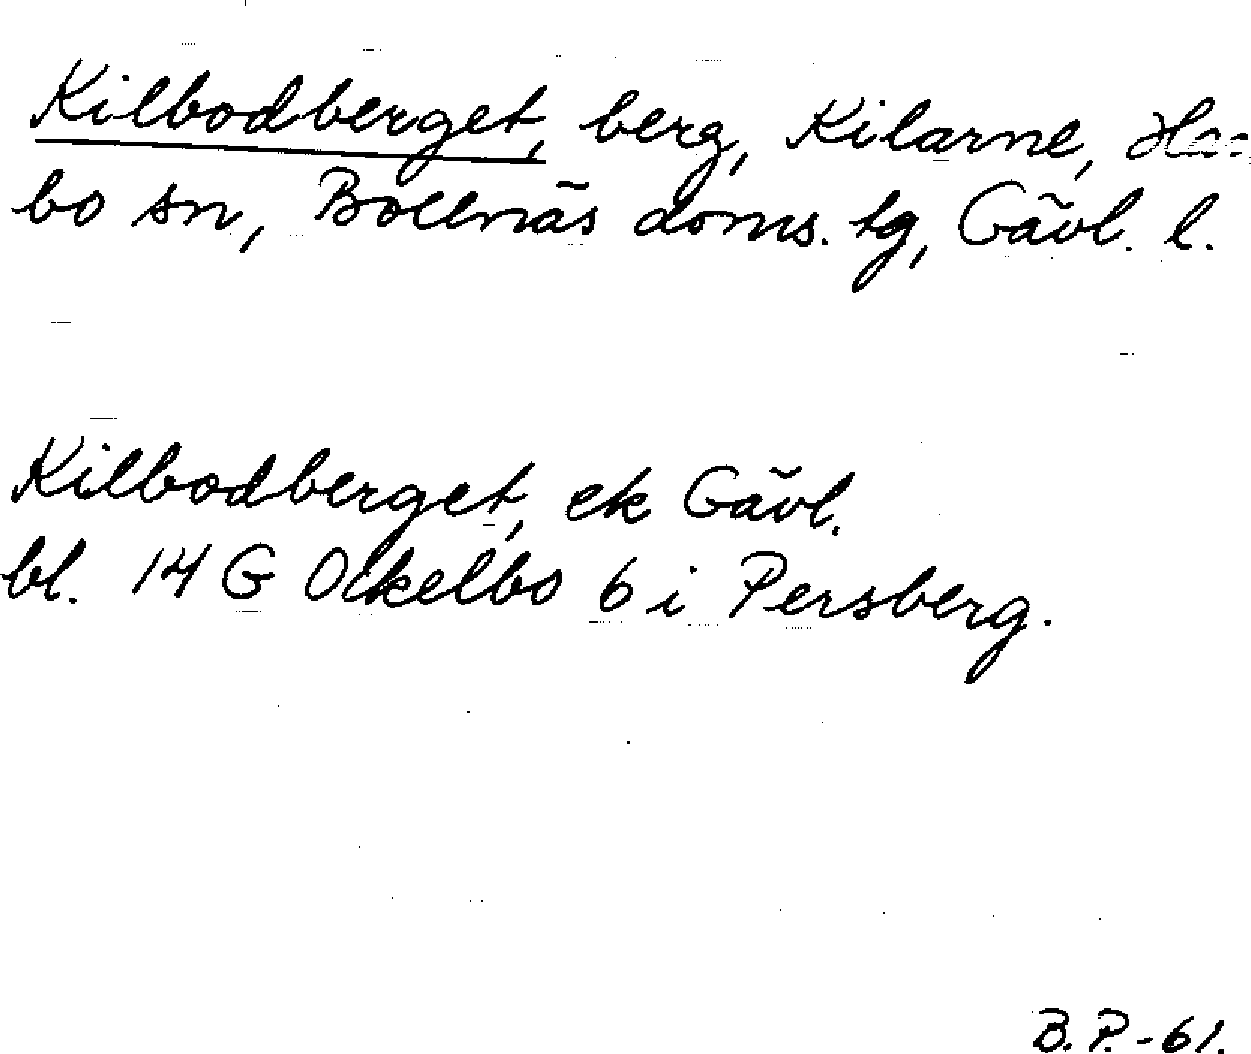 Kilbodberget, berg, Kilarne,
bo sn, Bollnäs doms. tg, Gävl. l.
Kilbodberget, ek Gävl.
bl. 14 G Ockelbo 6 i Persberg.
B.P.-61.